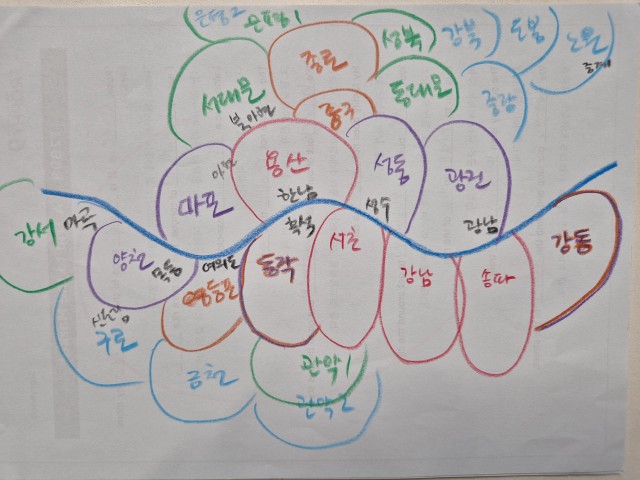 은평2
은평1
종로
성북
강북
도봉
노원
중계
서대문
북아현
중구
동대문
중랑
마포
아현
용산
한남
성동
성수
광진
광남
강서
마곡
양천
목동
여의도
영등포
흑석
동작
서초
강남
송파
강동
신도림
구로
금천
관악1
관악2